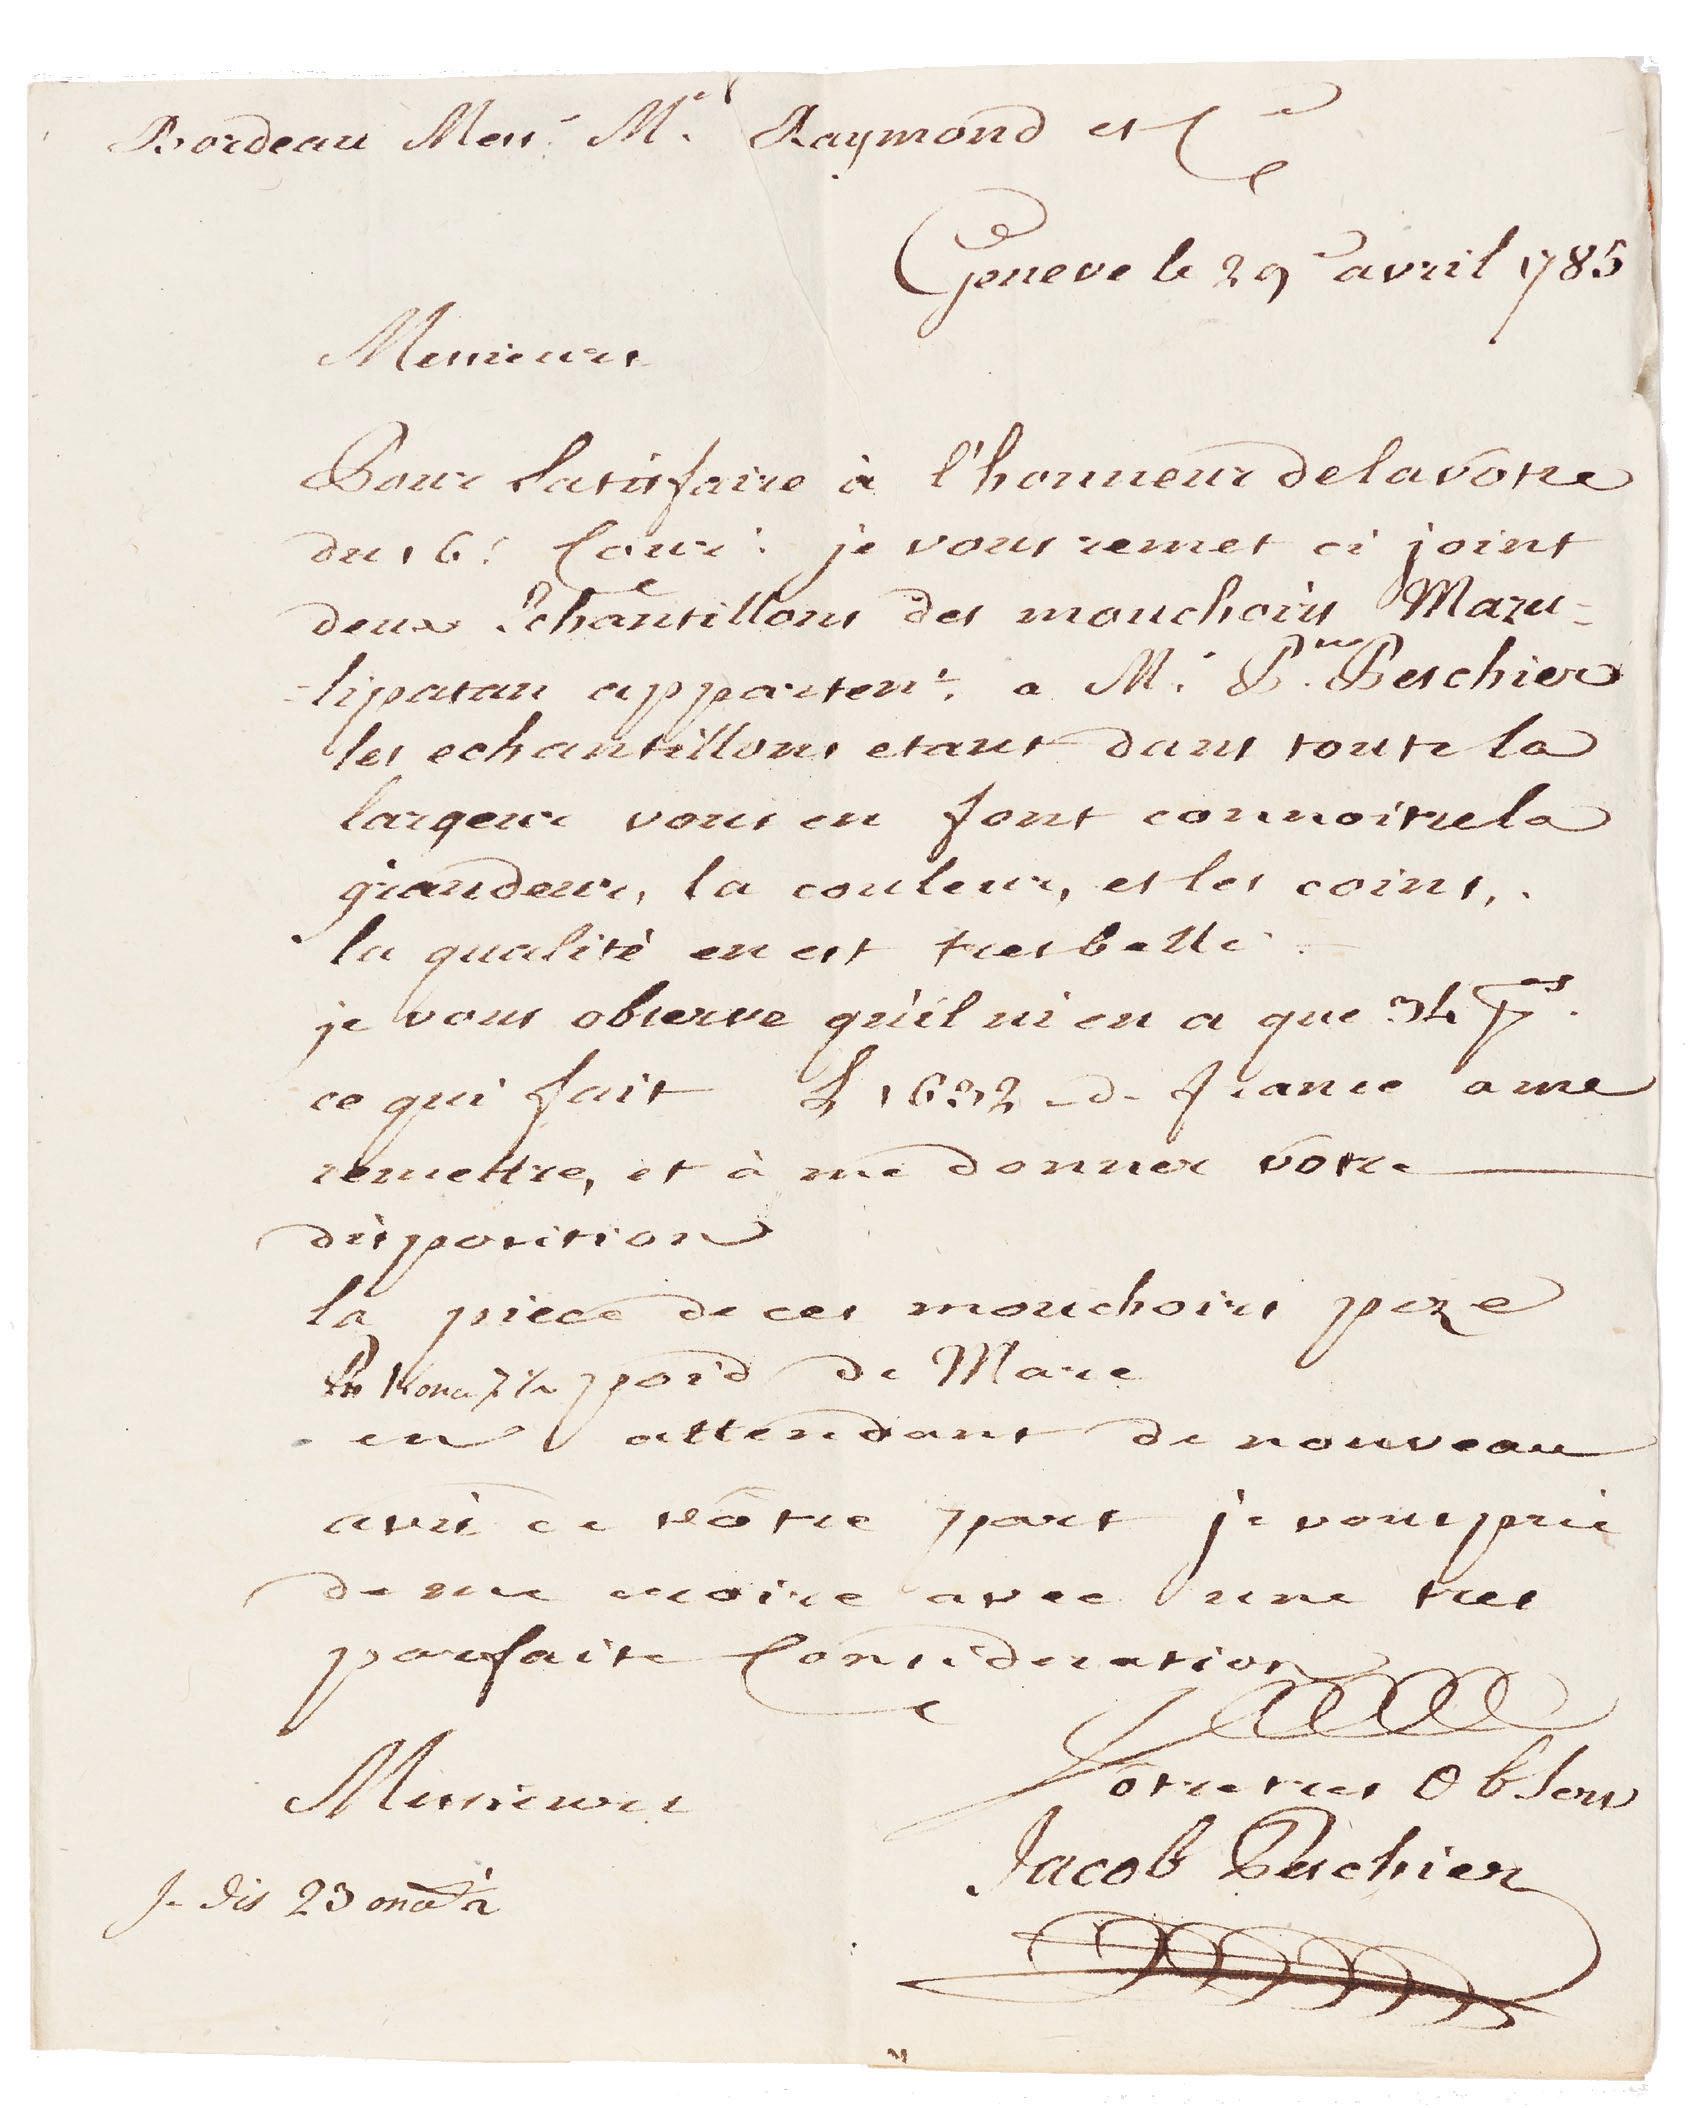 Bordeau Mess.rs M.e Raymond et C.e
Geneve le 29e avril 1785
Messieurs
Pour Satisfaire à l'honneur de la votre
du 16.e Cour.t je vous remet ci joint
deux Echantillons des mouchoirs Mazu=
=lipatan apparten.t a M.r P.re Peschier
les echantillons etant dans toute la
largeur vous en font connoitre la
grandeur, la couleur, et les coins,.
la qualité en est tres belle.
je vous observe qu'il ni en a que 34 p.es
ce qui fait £ 1632 - d - france a me
remettre, et à me donner votre
disposition
la piece de ces mouchoirs peze
poid de Marc
en attendant de nouveau
avis de vôtre part je vous prie
de me croire avec une tres
parfaite Consideration
Messieurs
Vôtre tres Ob Serv
Jacob Peschier
Je dis 23 once